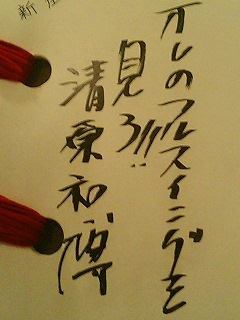 オレのフルスイングを
見ろ!!!
清原和博
新